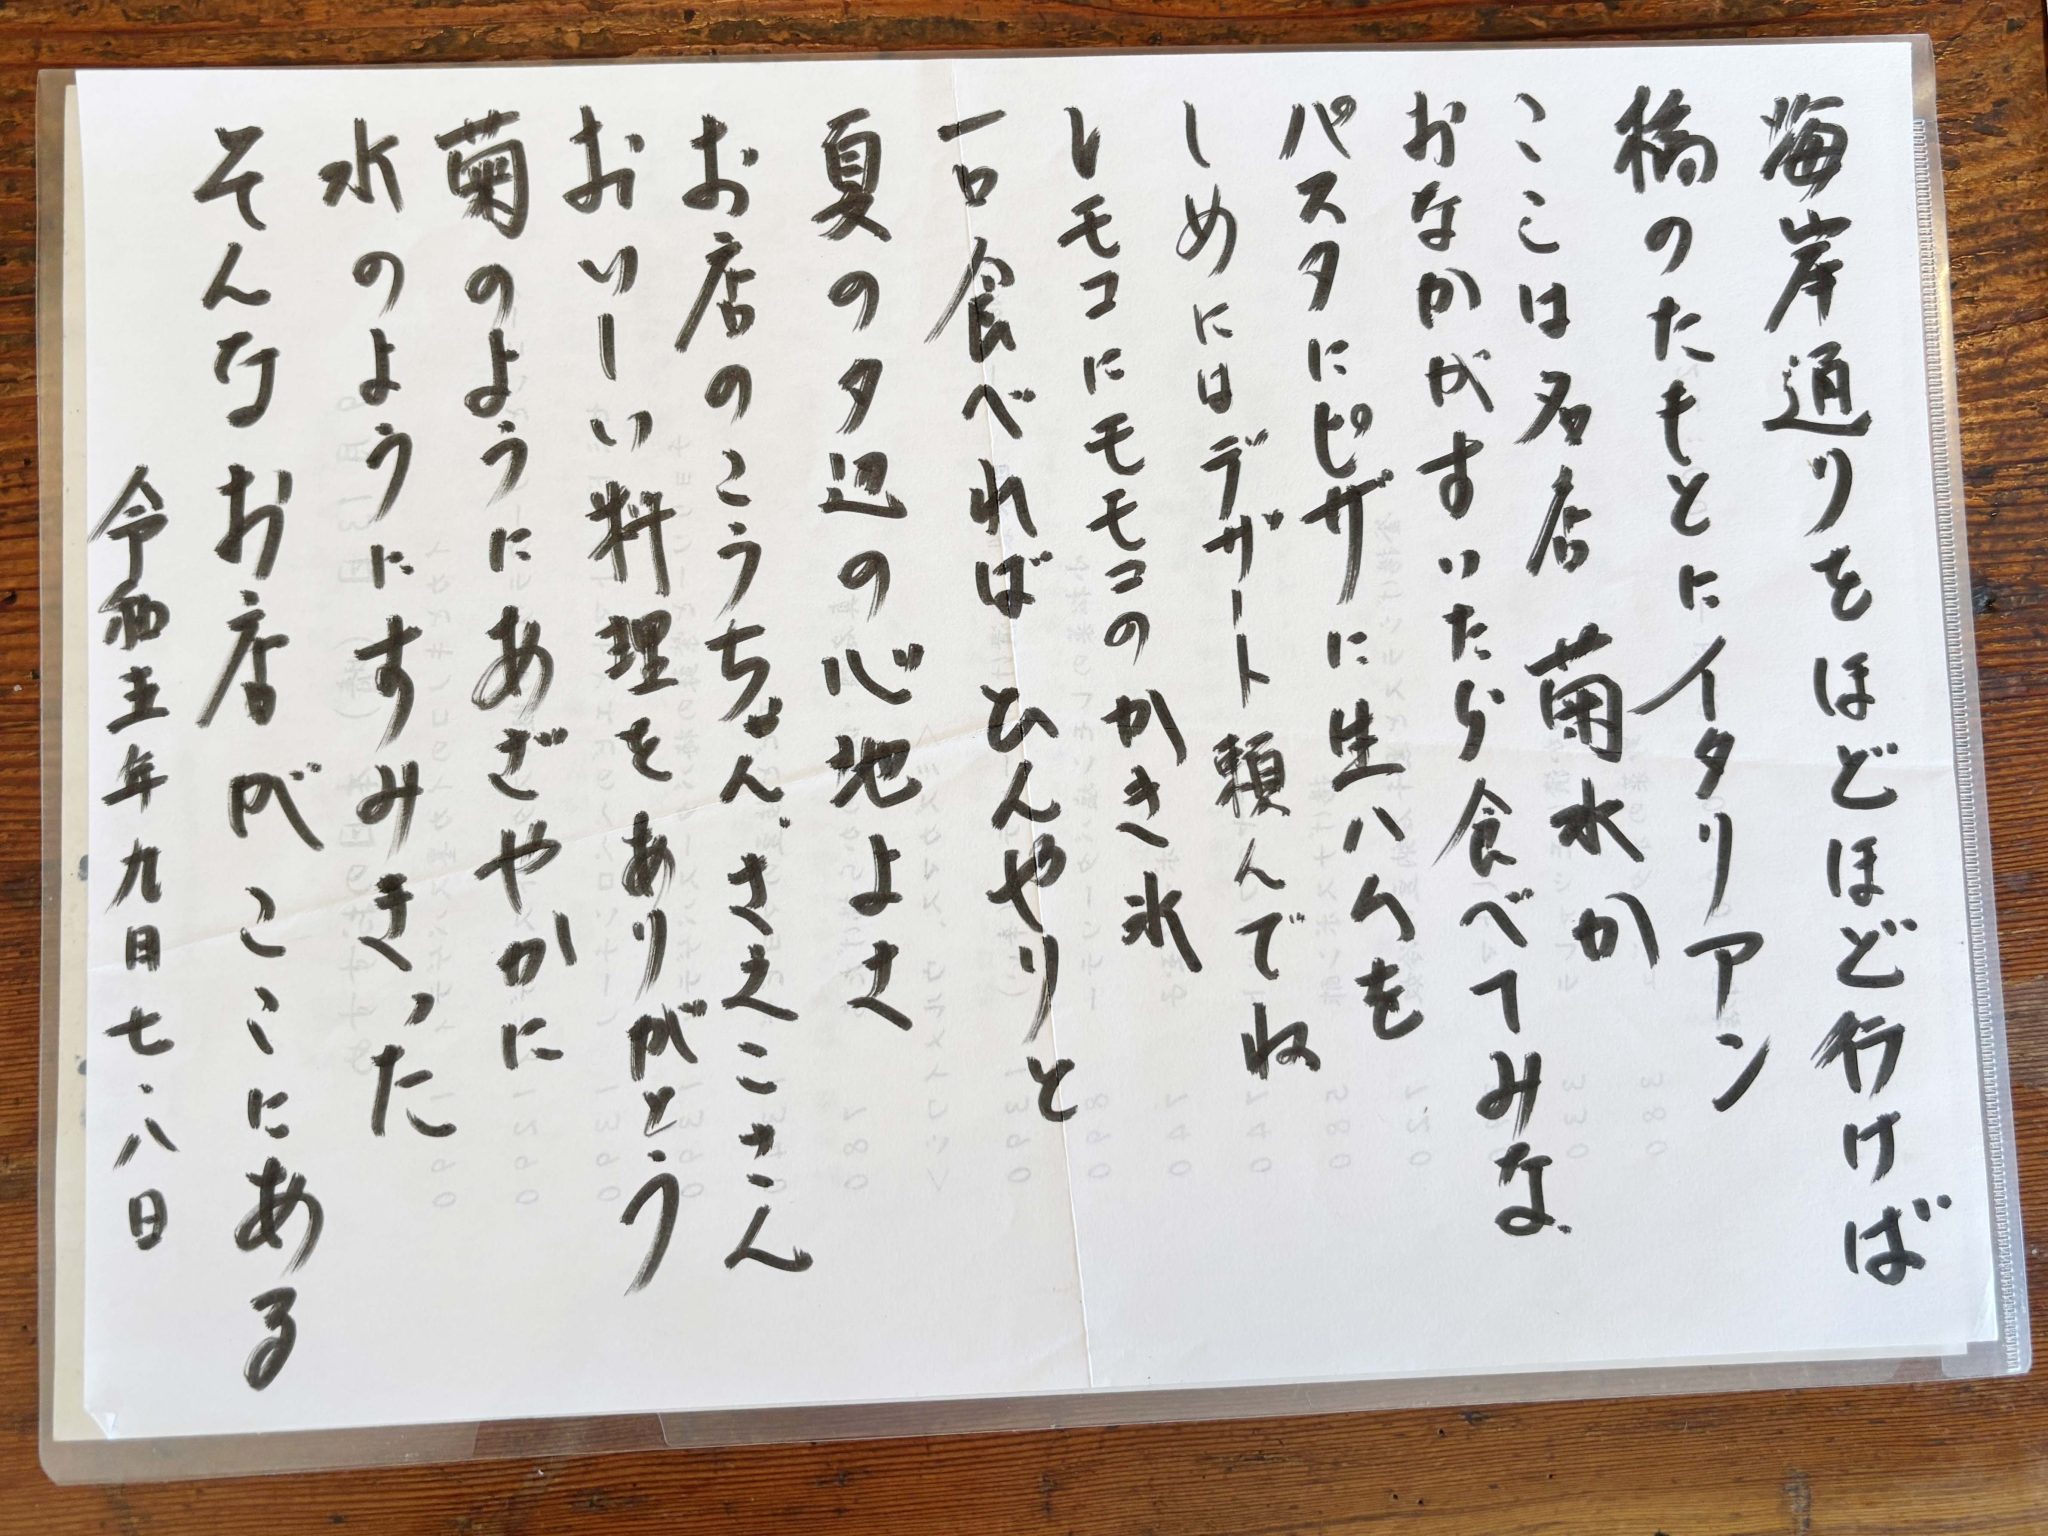 海岸通りをほどほど行けば
橋のたもとにイタリアン
ここは名店 菊水か
おなかがすいたら食べてみな
パスタにピザに生ハムを
しめにはデザート頼んでね
レモコにモモコのかき氷
一口食べればひんやりと
夏の夕辺の心地よさ
お店のこうちゃん、さえこさん
おいしーい料理をありがとう
菊のようにあざやかに
水のようにすみきった
そんなお店がここにある
令和五年九月七、八日